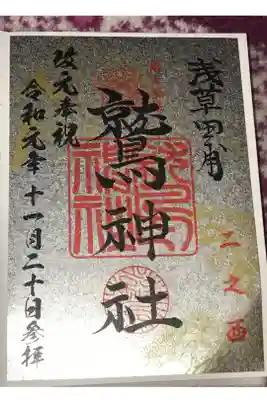 浅草田甫
鷲神社
二之酉
改元奉祝
令和元年十一月二十日参拝